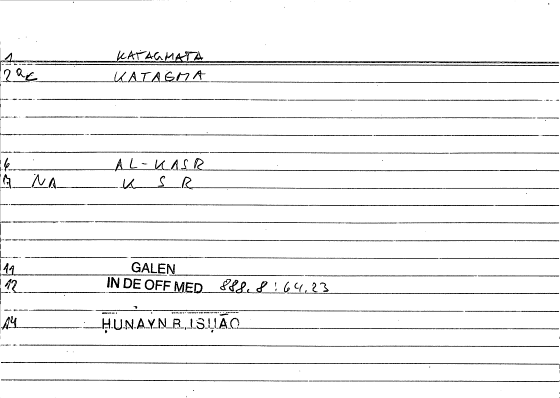 1 KATAGMATA
2 ac KATAGMA
6 AL-KASR
7 NA K S R
11 GALEN
12 IN DE OFF MED 888.8:64.23
14 ḤUNAYN B. ISḤĀQ